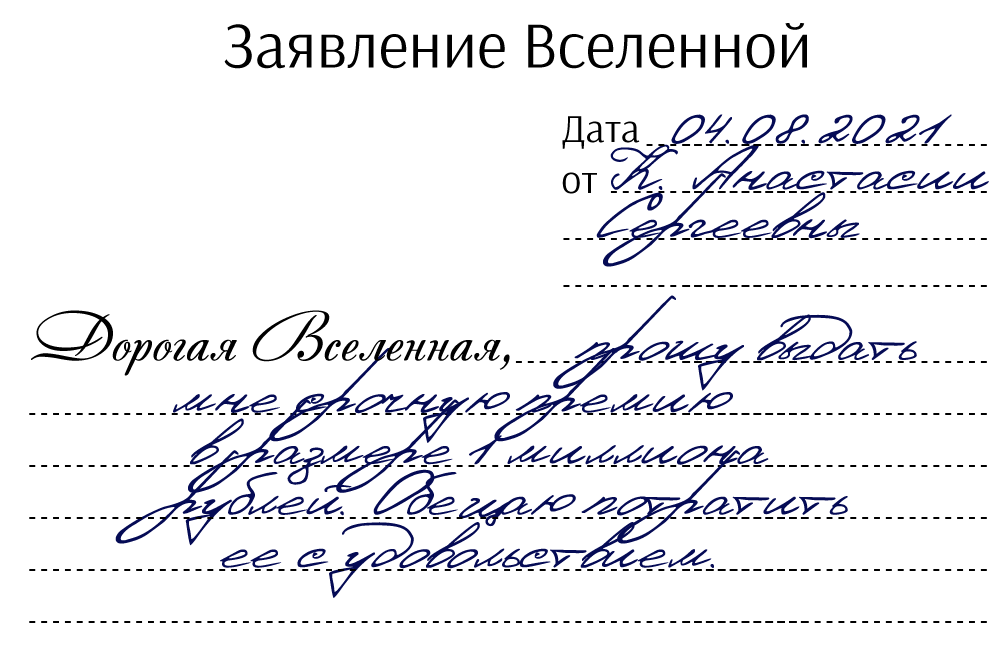 Заявление Вселенной
Дата 04.08.2021
от К. Анастасии
Сергеевны
Дорогая Вселенная, прошу выдать
мне срочную премию
в размере 1 миллиона
рублей. Обещаю потратить
ее с удовольствием.